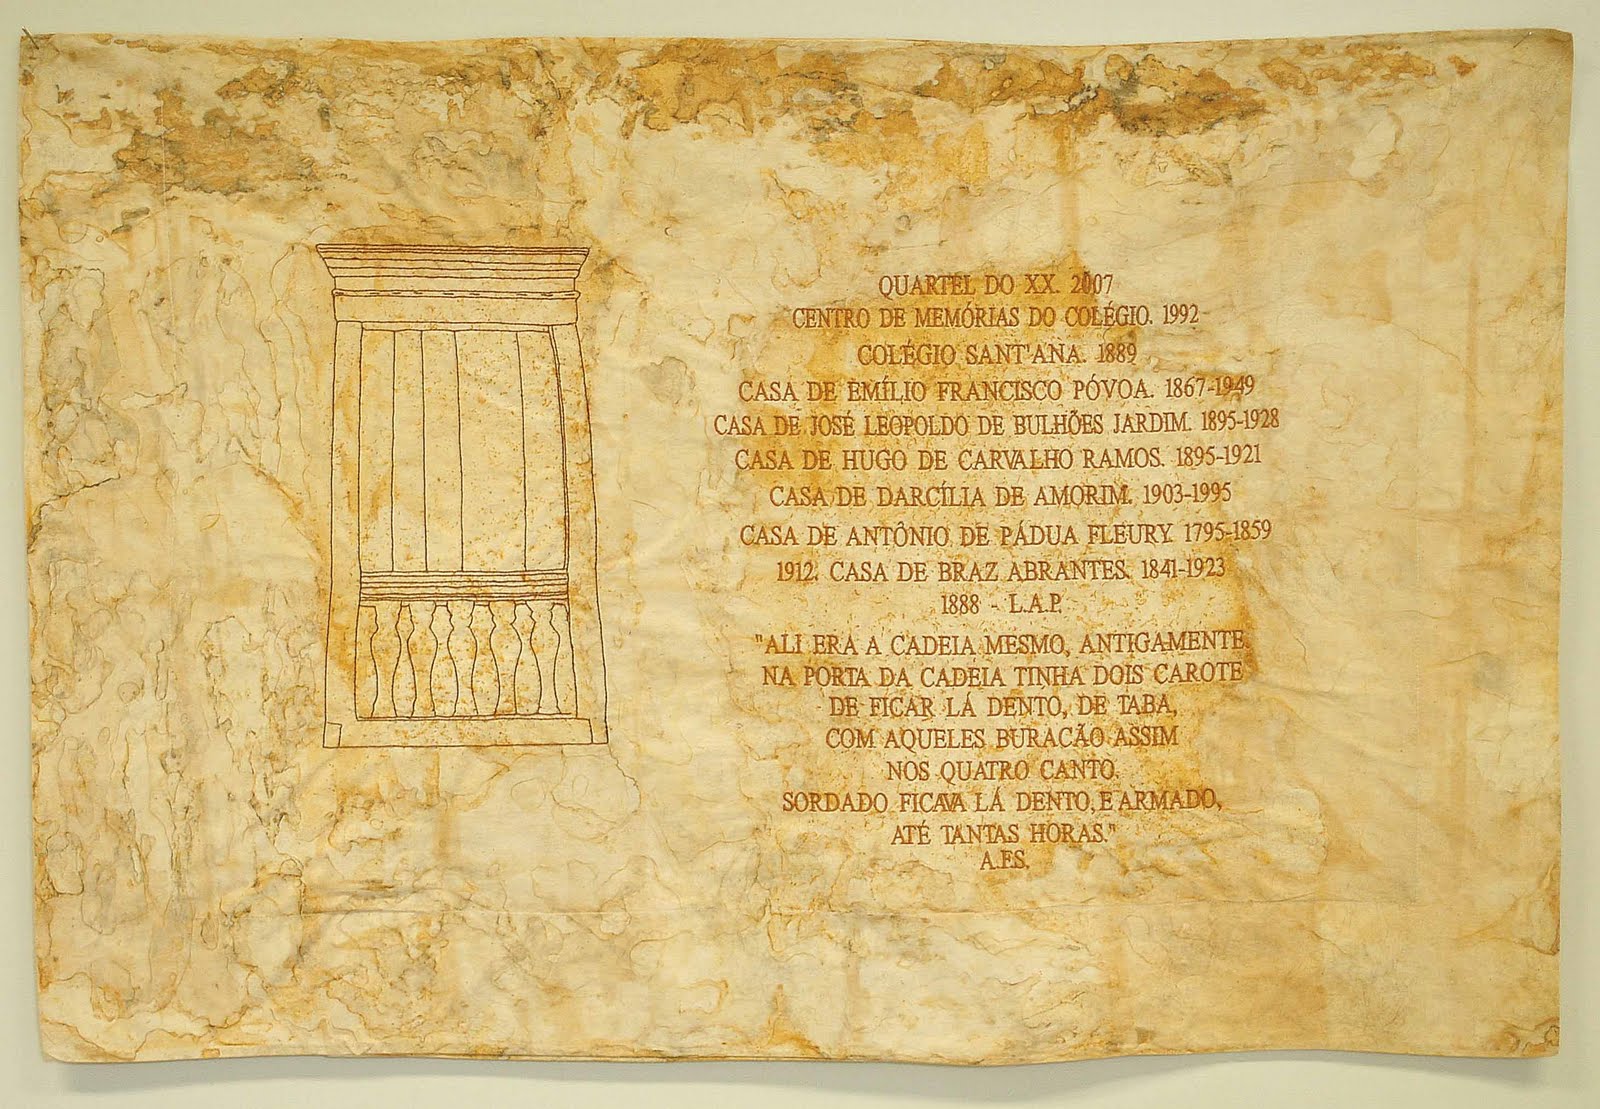 QUARTEL DO XX. 2007
CENTRO DE MEMÓRIAS DO COLÉGIO. 1992
COLÉGIO SANT'ANA. 1889
CASA DE EMÍLIO FRANCISCO PÓVOA. 1867-1949
CASA DE JOSÉ LEOPOLDO DE BULHÕES JARDIM. 1895-1928
CASA DE HUGO DE CARVALHO RAMOS. 1895-1921
CASA DE DARCÍLIA DE AMORIM. 1903-1995
CASA DE ANTÔNIO DE PÁDUA FLEURY. 1795-1859
1912. CASA DE BRAZ ABRANTES. 1841-1923
1888 - L.A.P.
"ALI ERA A CADEIA MESMO, ANTIGAMENTE.
NA PORTA DA CADEIA TINHA DOIS CAROTE
DE FICAR LÁ DENTO, DE TABA,
COM AQUELES BURACÃO ASSIM
NOS QUATRO CANTO.
SORDADO FICAVA LÁ DENTO, E ARMADO,
ATÉ TANTAS HORAS."
A.F.S.